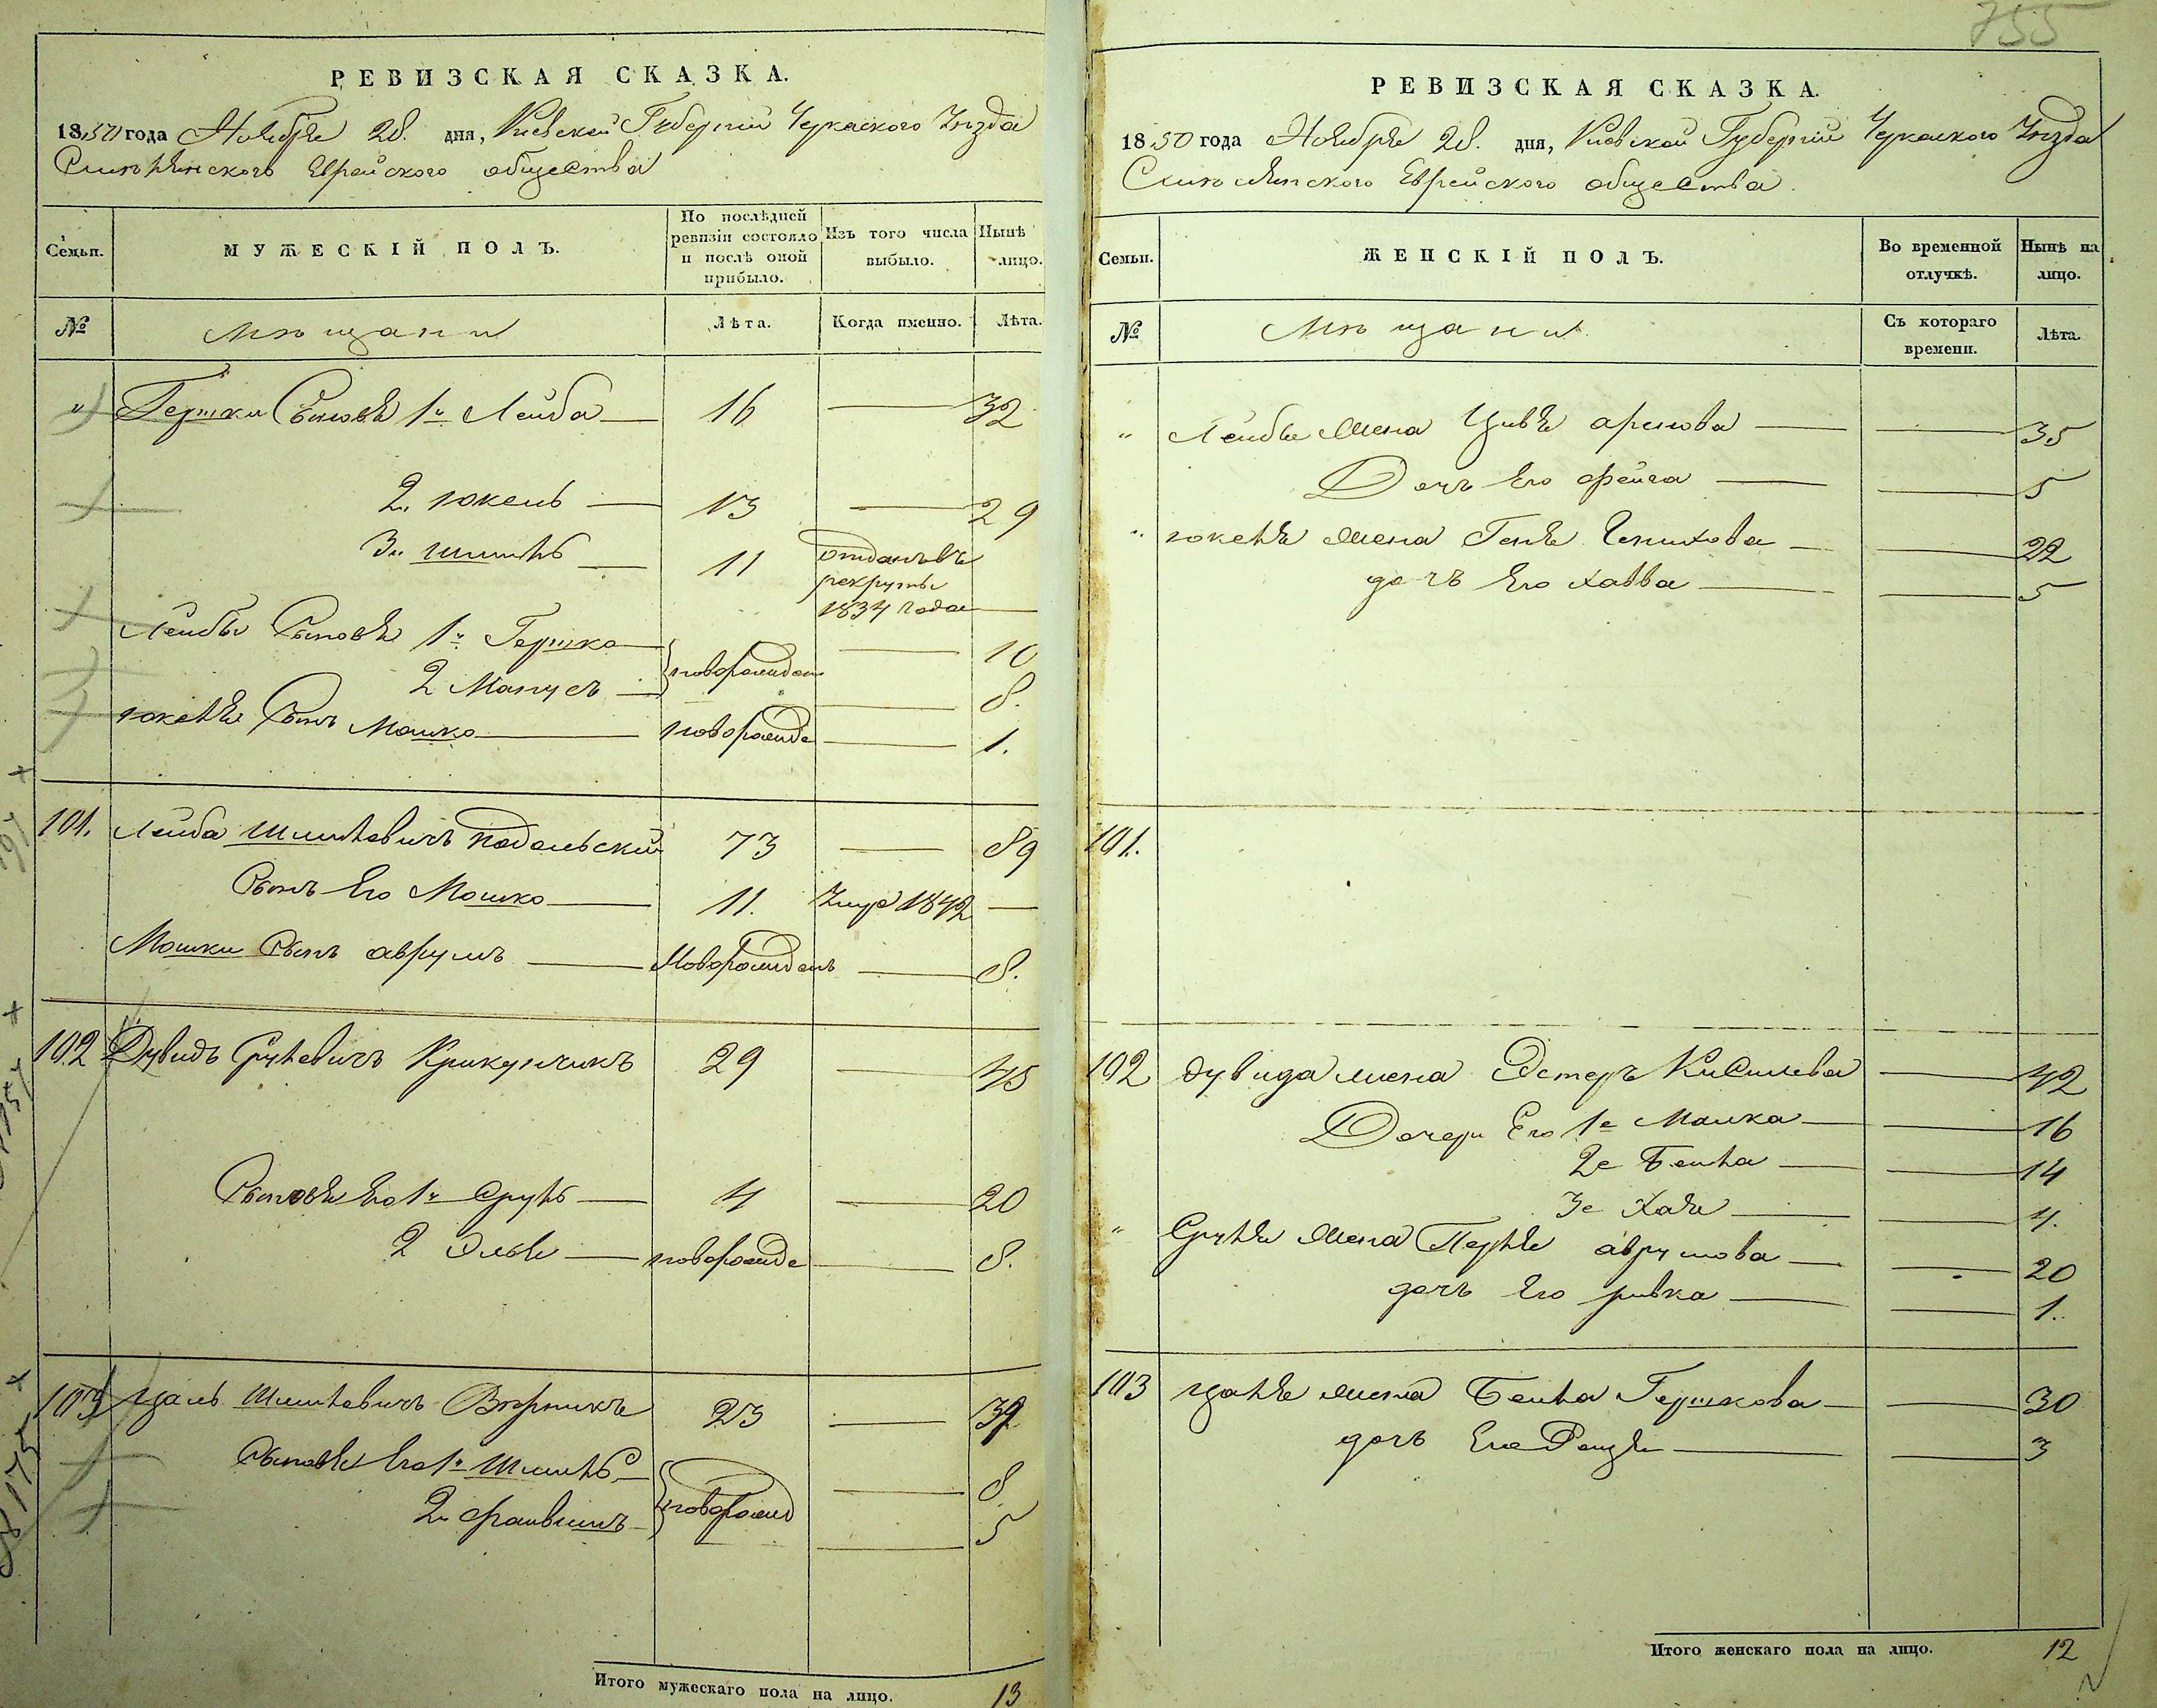 755
РЕВИЗСКАЯ СКАЗКА.
1850 года Ноября 28. дня, Киевской Губернии Черкаского Уезда
Еврейского общества
Семьи.
МУЖЕСКІЙ ПОЛЪ.
По послѣдней ревизіи состояло и послѣ оной прибыло.
Изъ того числа выбыло.
Нынѣ на лицо.
№
Мѣщани
Лѣта.
Когда именно.
Лѣта.
" Гершки Сыновя 1й Лейба 16 — 32
2й Юкель 13 — 29
3й Шмиль 11 отданъ въ
рекруты
1834 года —
Лейбы Сыновя 1й Гершко новорожден — 10
2 Манусъ — 8.
Юкеля Сынъ Мошко новорожде — 1.
101. Лейба Шмилевичъ Подольский 73 — 89
Сынъ Его Мошко 11. Умре 1842 —
Мошки Сынъ аврумъ Новорожденъ — 8.
102 Дувидъ Срулевичъ Крикунчикъ 29 — 45
Сыновя Его 1й Сруль 4 — 20
2 Элья новорожде — 8.
103 Цаль Шмилевичъ 23 — 39
Сыновя Его 1й Шмиль новорожд — 8
2й Фраивимъ — 5
Итого мужескаго пола на лицо. 13
РЕВИЗСКАЯ СКАЗКА.
1850 года Ноября 28. дня, Киевской Губернии Черкаского Уезда
Еврейского общества.
Семьи.
ЖЕНСКІЙ ПОЛЪ.
Во временной отлучкѣ.
Нынѣ на лицо.
№
Мѣщани
Съ котораго времени.
Лѣта.
" Лейбы жена Цивя — 35
Дочь Его Фейга — 5
" Юкеля жена Геня — 22
дочь Его Хавва — 5
101.
102 Дувида жена Эстеръ Кисилева — 42
Дочери Его 1е Малка — 16
2е Бейла — 14
3е Хая — 4.
" Сруля жена Перля аврумова — 20
дочь Его ривка — 1.
103 Цаля жена Бейла Гершкова — 30
дочь Его Рейзя — 3
Итого женскаго пола на лицо. 12